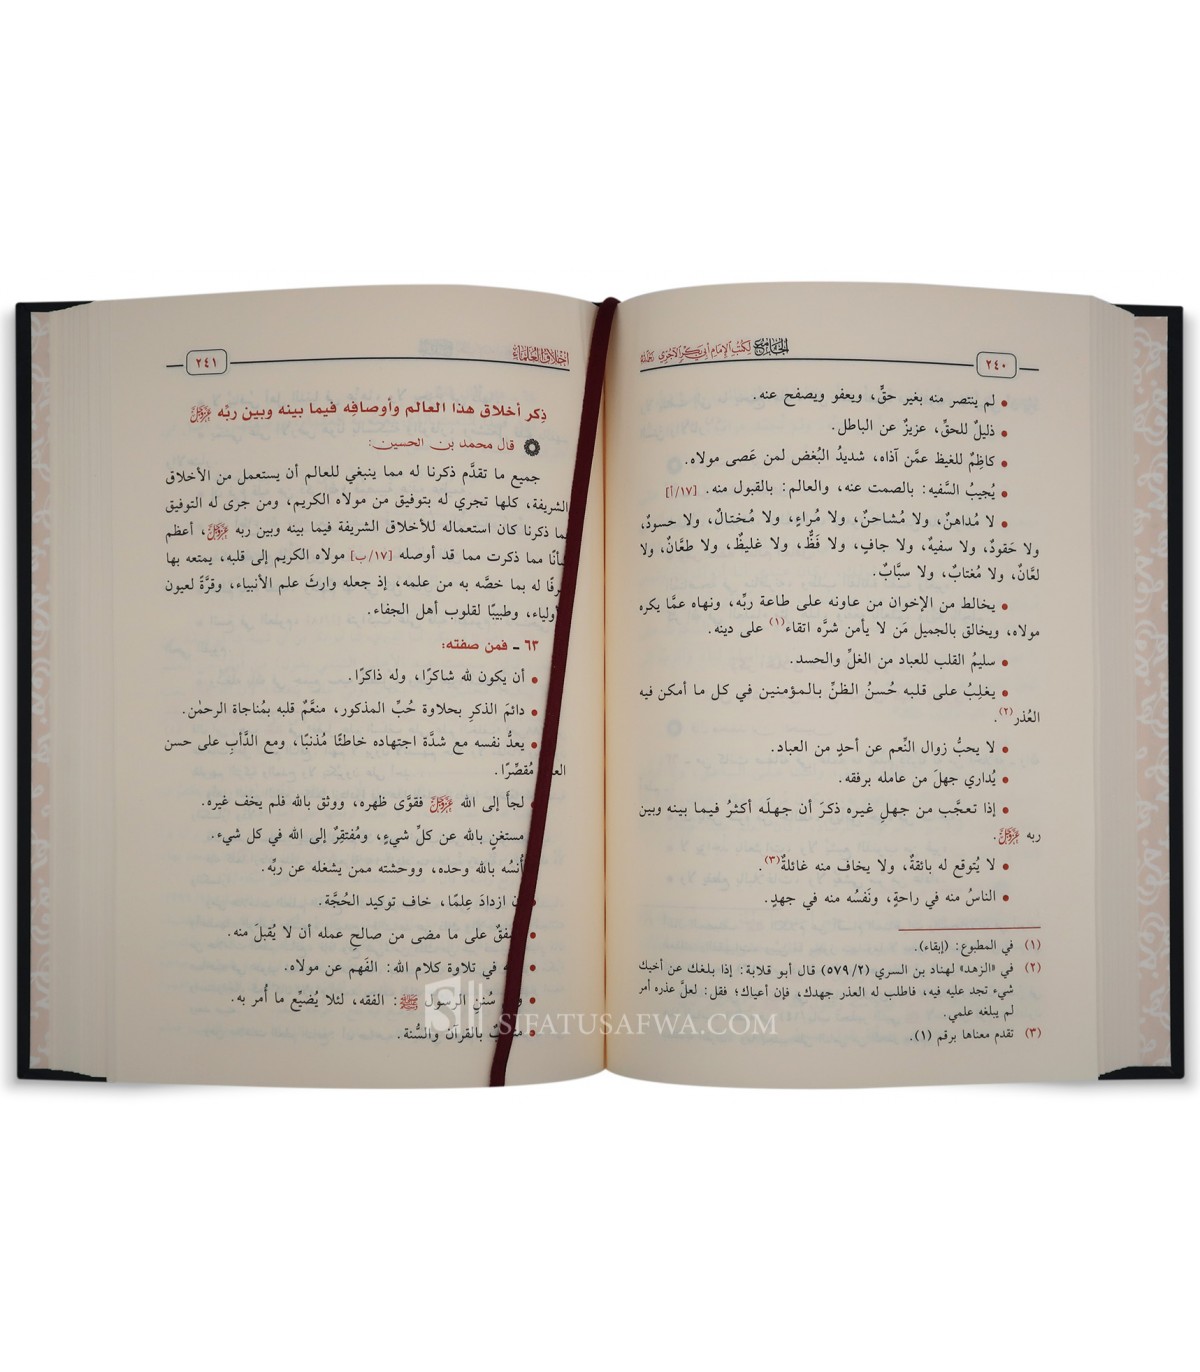 الجامع لكتب الإمام أبي بكر الآجري رحمه الله
٢٤٠
• لم ينتصر منه بغير حقٍّ، ويعفو ويصفح عنه.
• ذليلٌ للحقِّ، عزيزٌ عن الباطل.
• كاظِمٌ للغيظ عمَّن آذاه، شديدُ البُغض لمن عَصى مولاه.
• يُجيبُ السَّفيه: بالصمت عنه، والعالم: بالقبول منه. [١٧/أ]
• لا مُداهنٌ، ولا مُشاحنٌ، ولا مُراءٍ، ولا مُختالٌ، ولا حسودٌ،
ولا حَقودٌ، ولا سفيهٌ، ولا جافٍ، ولا فَظٌّ، ولا غليظٌ، ولا طعَّانٌ، ولا
لعَّانٌ، ولا مُغتابٌ، ولا سبَّابٌ.
• يخالط من الإخوان من عاونه على طاعة ربِّه، ونهاه عمَّا يكره
مولاه، ويخالق بالجميل مَن لا يأمن شرَّه اتقاء(١) على دينه.
• سليمُ القلب للعباد من الغلِّ والحسد.
• يغلِبُ على قلبه حُسنُ الظنِّ بالمؤمنين في كل ما أمكن فيه
العُذر(٢).
• لا يحبُّ زوال النِّعم عن أحدٍ من العباد.
• يُداري جهلَ من عامله برفقه.
• إذا تعجَّب من جهلِ غيره ذكرَ أن جهلَه أكثرُ فيما بينه وبين
ربه عَزَّوَجَلَّ.
• لا يُتوقع له بائقةٌ، ولا يخاف منه غائلةٌ(٣).
• الناسُ منه في راحةٍ، ونَفسُه منه في جهدٍ.
(١) في المطبوع: (إبقاء).
(٢) في «الزهد» لهناد بن السري (٥٧٩/٢) قال أبو قلابة: إذا بلغك عن أخيك
شيء تجد عليه فيه، فاطلب له العذر جهدك، فإن أعياك؛ فقل: لعلَّ عذره أمر
لم يبلغه علمي.
(٣) تقدم معناها برقم (١).
أخلاق العلماء
٢٤١
ذِكر أخلاق هذا العالم وأوصافِه فيما بينه وبين ربِّه عَزَّوَجَلَّ
قال محمد بن الحسين:
جميع ما تقدَّم ذكرنا له مما ينبغي للعالم أن يستعمل من الأخلاق
الشريفة، كلها تجري له بتوفيق من مولاه الكريم، ومن جرى له التوفيق
ما ذكرنا كان استعماله للأخلاق الشريفة فيما بينه وبين ربه عَزَّوَجَلَّ، أعظم
مما ذكرت مما قد أوصله [١٧/ب] مولاه الكريم إلى قلبه، يمتعه بها
له بما خصَّه به من علمه، إذ جعله وارثَ علم الأنبياء، وقرَّةً لعيون
وطبيبًا لقلوب أهل الجفاء.
٦٣ - فمن صفته:
• أن يكون لله شاكرًا، وله ذاكرًا.
• دائمَ الذكرِ بحلاوة حُبِّ المذكور، منعَّمٌ قلبه بمُناجاة الرحمٰن.
• يعدُّ نفسه مع شدَّة اجتهاده خاطئًا مُذنبًا، ومع الدَّأبِ على حسن
مُقصِّرًا.
• لجأ إلى الله عَزَّوَجَلَّ فقوَّى ظهره، ووثق بالله فلم يخف غيره.
مستغنٍ بالله عن كلِّ شيءٍ، ومُفتقِرٌ إلى الله في كل شيء.
أُنسُه بالله وحده، ووحشته ممن يشغله عن ربِّه.
ازدادَ عِلمًا، خاف توكيد الحُجَّة.
• على ما مضى من صالحِ عمله أن لا يُقبلَ منه.
• في تلاوة كلام الله: الفَهم عن مولاه.
• سُنن الرسول ﷺ: الفقه، لئلا يُضيِّع ما أُمر به.
• بالقرآن والسُّنة.
SIFATUSAFWA.COM